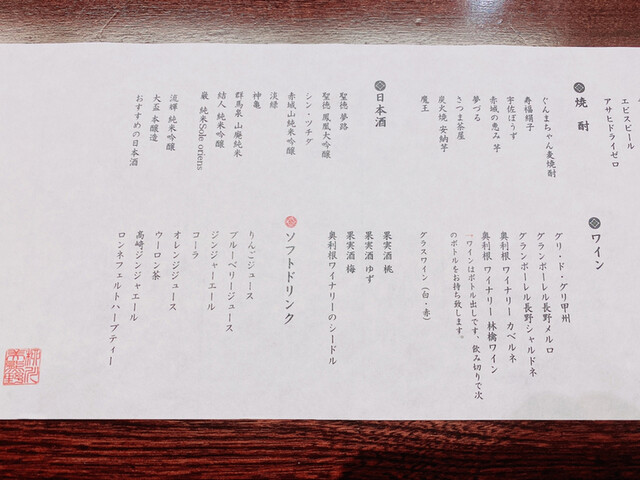 エビスビール
アサヒドライゼロ
焼酎
ぐんまちゃん麦焼酎
寿福絹子
宇佐ぼうず
赤城の恵み 芋
夢づる
さつま茶屋
炭火焼 安納芋
魔王
日本酒
聖徳 夢路
聖徳 鳳凰大吟醸
シン・ツチグ
赤城山 純米吟醸
淡緑
神亀
群馬泉 山廃純米
結人 純米吟醸
巌 純米Sole oriens
流輝 純米吟醸
大盃 本醸造
おすすめの日本酒
ワイン
グリ・ド・グリ甲州
グランポーレル長野メルロ
グランポーレル長野シャルドネ
奥利根 ワイナリー カベルネ
奥利根 ワイナリー 林檎ワイン
→ワインはボトル出しです。飲み切りで次
のボトルをお持ち致します。
グラスワイン（白・赤）
果実酒 桃
果実酒 ゆず
果実酒 梅
奥利根ワイナリーのシードル
ソフトドリンク
りんごジュース
ブルーベリージュース
ジンジャーエール
コーラ
オレンジジュース
ウーロン茶
高崎ジンジャエール
ロンネフェルトハーブティー